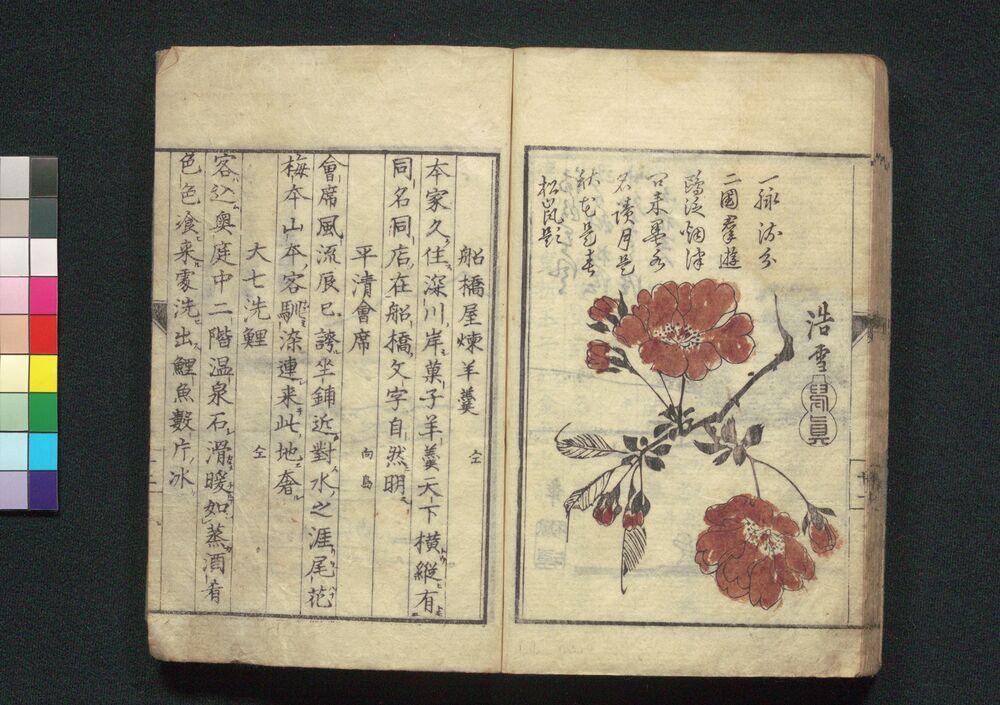 浩雪
一脉流分
二國羣遊
鴎泛烟津
墨水
名月是
秋花是春
松嵐題
船橋屋煉羊羹 仝
本家久住深川岸菓子羊羹天下横縦有
同名同店在船橋文字自然明
平清會席 向島
會席風流辰巳誇坐鋪近對水之涯尾花
梅本山本客馴染連来此地奢
大七洗鯉 仝
客込奥庭中二階温泉石滑暖如蒸酒肴
色色喰来処洗出鯉魚數片冰